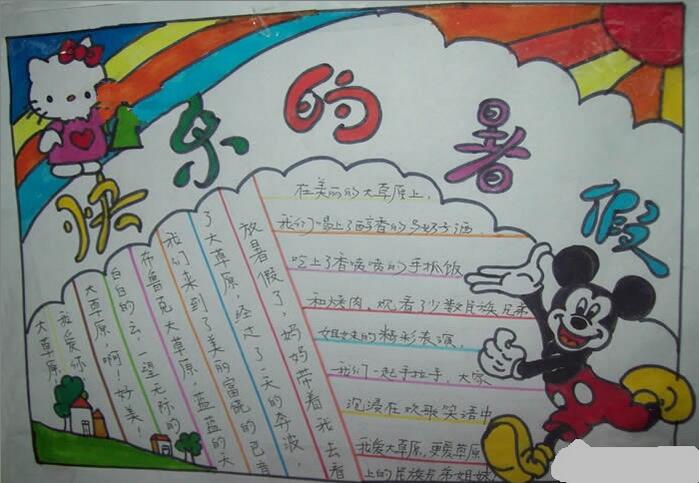 快乐的暑假
放暑假了，妈妈带着我去看
了大草原，经过了一天的奔波，
我们来到了美丽富饶的巴音
布鲁克大草原，蓝蓝的天
白白的云，一望无际的
大草原，啊！好美！
我爱你
大草原
在美丽的大草原上，
我们喝上了醇香的马奶子酒，
吃上了香喷喷的手抓饭
和烤肉，欢看了少数民族兄弟
姐妹的精彩表演，
我们一起手拉手，大家
沉浸在欢歌笑语中
我爱大草原，更爱草原
上的民族兄弟姐妹